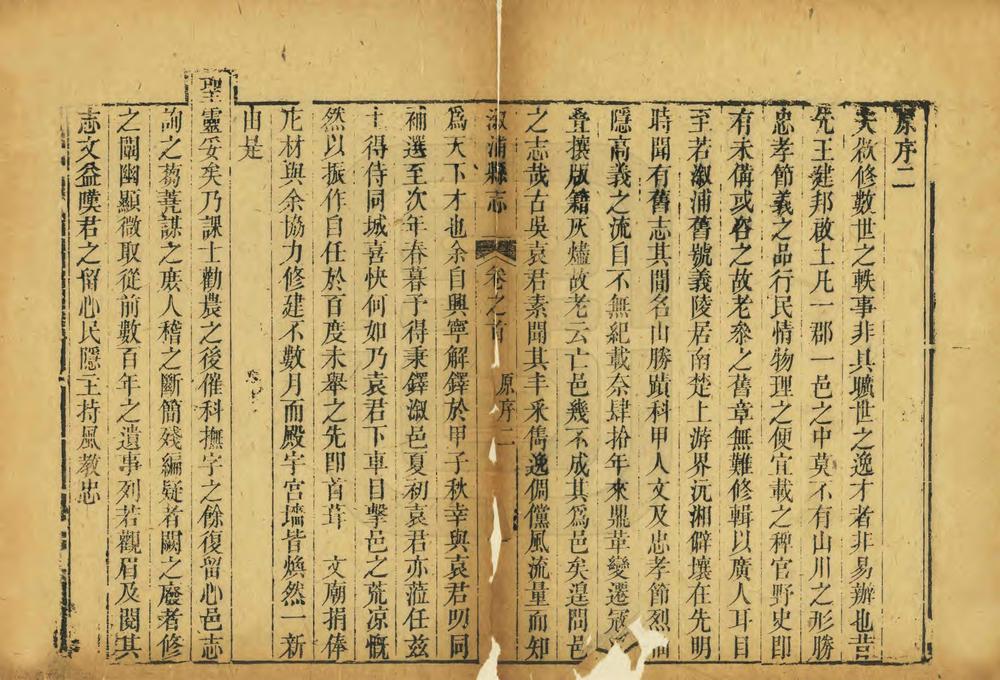 原序二
夫欲修數世之軼事非具曠世之逸才者非易辦也昔
先王建邦啟土凡一郡一邑之中莫不有山川之形勝
忠孝節義之品行民情物理之便宜載之稗官野史即
有未備或咎之故老參之舊章無難修輯以廣人耳目
至若溆浦舊號義陵居南楚上游界沅湘僻壤在先明
時聞有舊志其間名山勝蹟科甲人文及忠孝節烈
隱高義之流自不無紀載奈肆拾年來鼎革變遷冦
叠攘版籍灰燼故老云亡邑幾不成其爲邑矣遑問邑
之志哉古吳袁君素聞其丰采雋逸倜儻風流量而知
溆浦縣志 卷之首 原序二
爲天下才也余自興寧解鐸於甲子秋幸與袁君叨同
補選至次年春暮予得秉鐸溆邑夏初袁君亦蒞任兹
土得侍同城喜快何如乃袁君下車目擊邑之荒凉慨
然以振作自任於百度未舉之先即首葺 文廟捐俸
庀材與余協力修建不數月而殿宇宮墻皆煥然一新
由是
聖靈妥矣乃課士勸農之後催科撫字之餘復留心邑志
詢之蒭蕘謀之庶人稽之斷簡殘編疑者闕之廢者修
之闡幽顯微取從前數百年之遺事列若觀眉及閱其
志文益嘆君之留心民隱主持風教忠